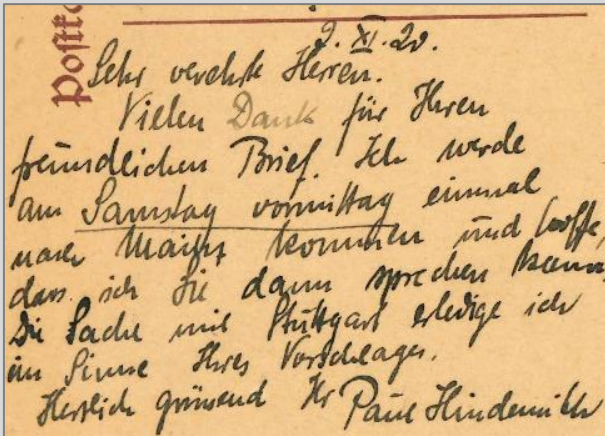 Postk
9. XI. 20.
Sehr verehrte Herren.
Vielen Dank für Ihren
freundlichen Brief. Ich werde
am Samstag vormittag einmal
nach Mainz kommen und hoffe,
dass ich Sie dann sprechen kann.
Die Sache mit Stuttgart erledige ich
im Sinne Ihres Vorschlages.
Herzlich grüssend Ihr Paul Hindemith